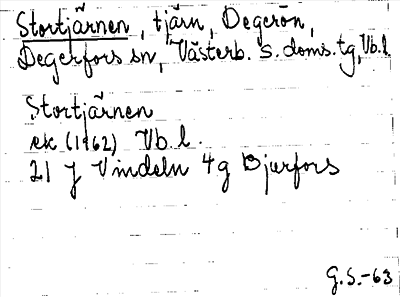 Stortjärnen, tjärn, Degerön,
Degerfors sn, Västerb. s. doms. tg, Vb. l.
Stortjärnen
ek (1962) Vb. l.
21 J Vindeln 4g Djurfors
G. S. -63